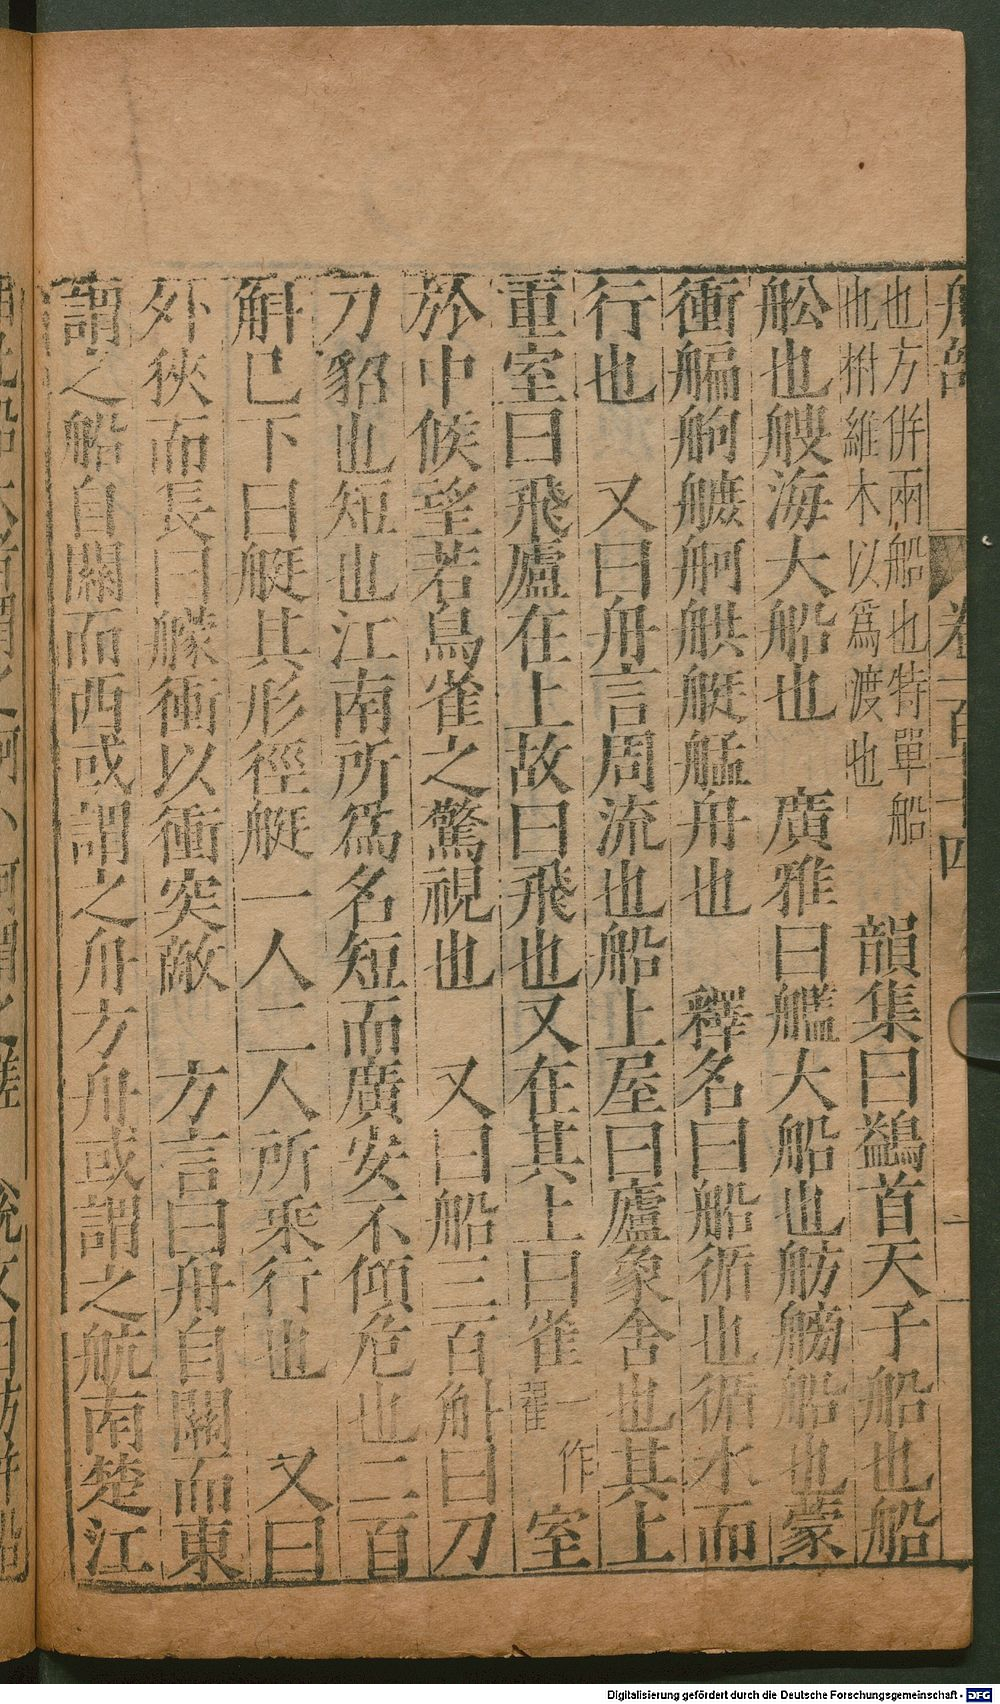 卷一百十四
也方併兩船也特單船
也泭維木以為渡也
韻集曰鷁首天子船也船
舩也艘海大船也 廣雅曰艦大船也舫艕船也蒙
衝艑䑦艫舸䑠艇艋舟也 釋名曰船循也循水而
行也 又曰舟言周流也船上屋曰廬象舍也其上
重室曰飛廬在上故曰飛也又在其上曰雀一作翟室
於中候望若鳥雀之驚視也 又曰船三百斛曰刀
刀貂也短也江南所為名短而廣安不傾危也二百
斛已下曰艇其形徑艇一人二人所乘行也 又曰
外狹而長曰艨衝以衝突敵 方言曰舟自關而東
謂之船自關而西或謂之舟方舟或謂之航南楚江